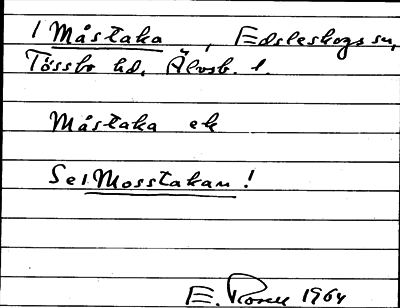 1 Måstaka , Edsleskogs sn,
Tössbo hd, Älvsb. l.
Måstaka ek
Se 1 Mosstakan !
E. Rosell 1964